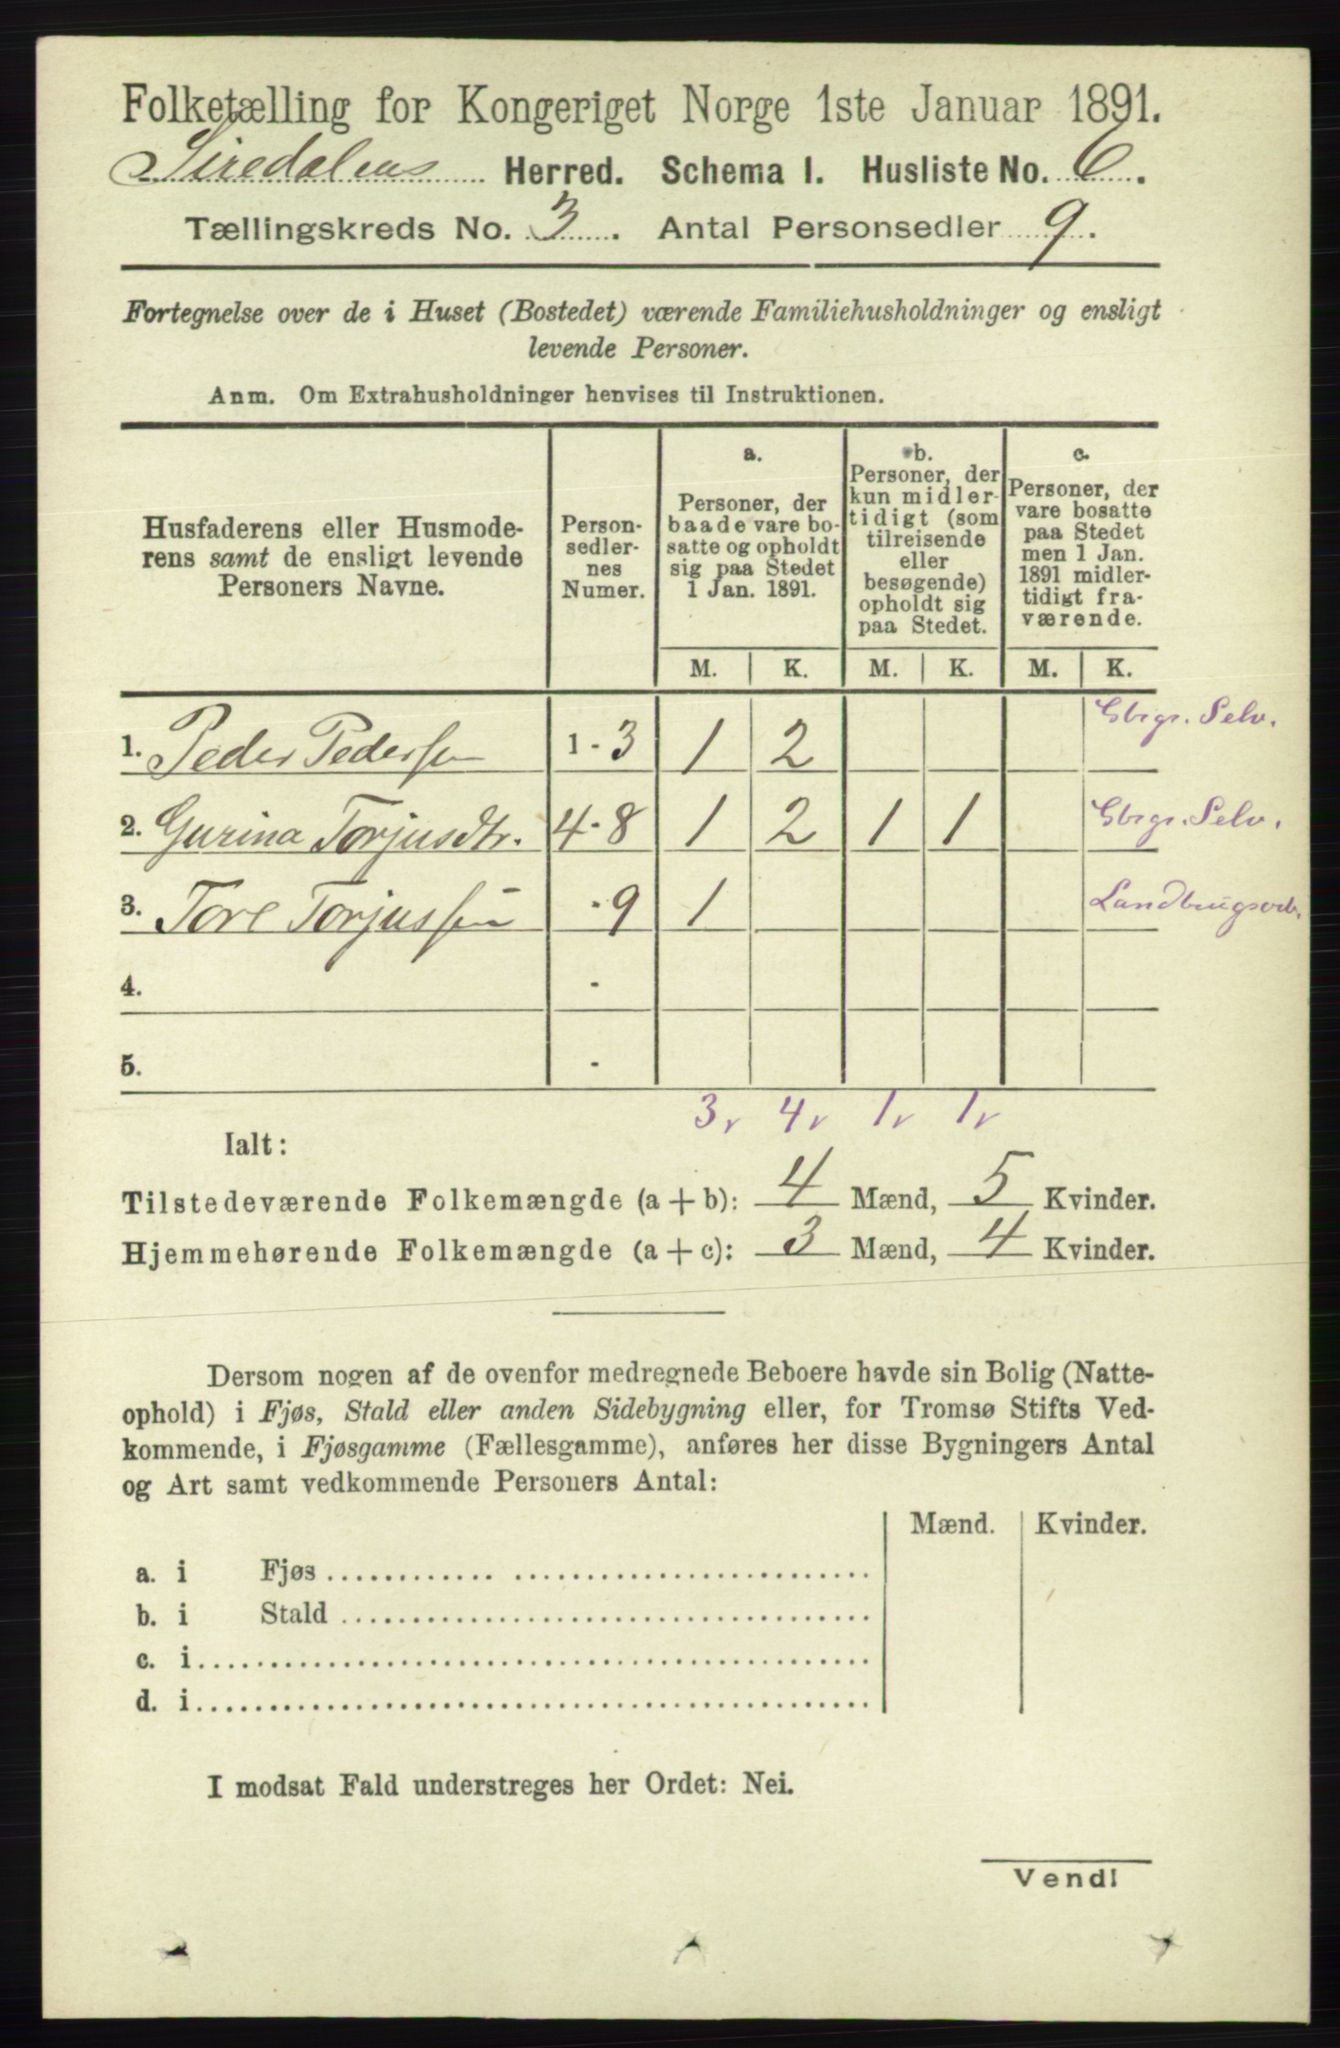 Folketælling for Kongeriget Norge 1ste Januar 1891.
Siredalens Herred. Schema I. Husliste No. 6.
Tællingskreds No. 3. Antal Personsedler 9.
Fortegnelse over de i Huset (Bostedet) værende Familiehusholdninger og ensligt
levende Personer.
Anm. Om Extrahusholdninger henvises til Instruktionen.
Husfaderens eller Husmode-
rens samt de ensligt levende
Personers Navne.
Person-
sedler-
nes
Numer.
a.
Personer, der
baade vare bo-
satte og opholdt
sig paa Stedet
1 Jan. 1891.
b.
Personer, der
kun midler-
tidigt (som
tilreisende
eller
besøgende)
opholdt sig
paa Stedet.
c.
Personer, der
vare bosatte
paa Stedet
men 1 Jan.
1891 midler-
tidigt fra-
værende.
M. K. M. K. M. K.
1. Peder Pedersen 1 - 3 1 2 Gbrgr. Selv.
2. Gurina Torjusdtr. 4 - 8 1 2 1 1 Gbrgr. Selv.
3. Tore Torjussen - 9 1 Landbrugsarb.
4. -
5. -
3 v 4 v 1 v 1 v
Ialt:
Tilstedeværende Folkemængde (a + b): 4 Mænd, 5 Kvinder.
Hjemmehørende Folkemængde (a + c): 3 Mænd, 4 Kvinder.
Dersom nogen af de ovenfor medregnede Beboere havde sin Bolig (Natte-
ophold) i Fjøs, Stald eller anden Sidebygning eller, for Tromsø Stifts Ved-
kommende, i Fjøsgamme (Fællesgamme), anføres her disse Bygningers Antal
og Art samt vedkommende Personers Antal:
Mænd. Kvinder.
a. i Fjøs
b. i Stald
c. i
d. i
I modsat Fald understreges her Ordet: Nei.
Vend!